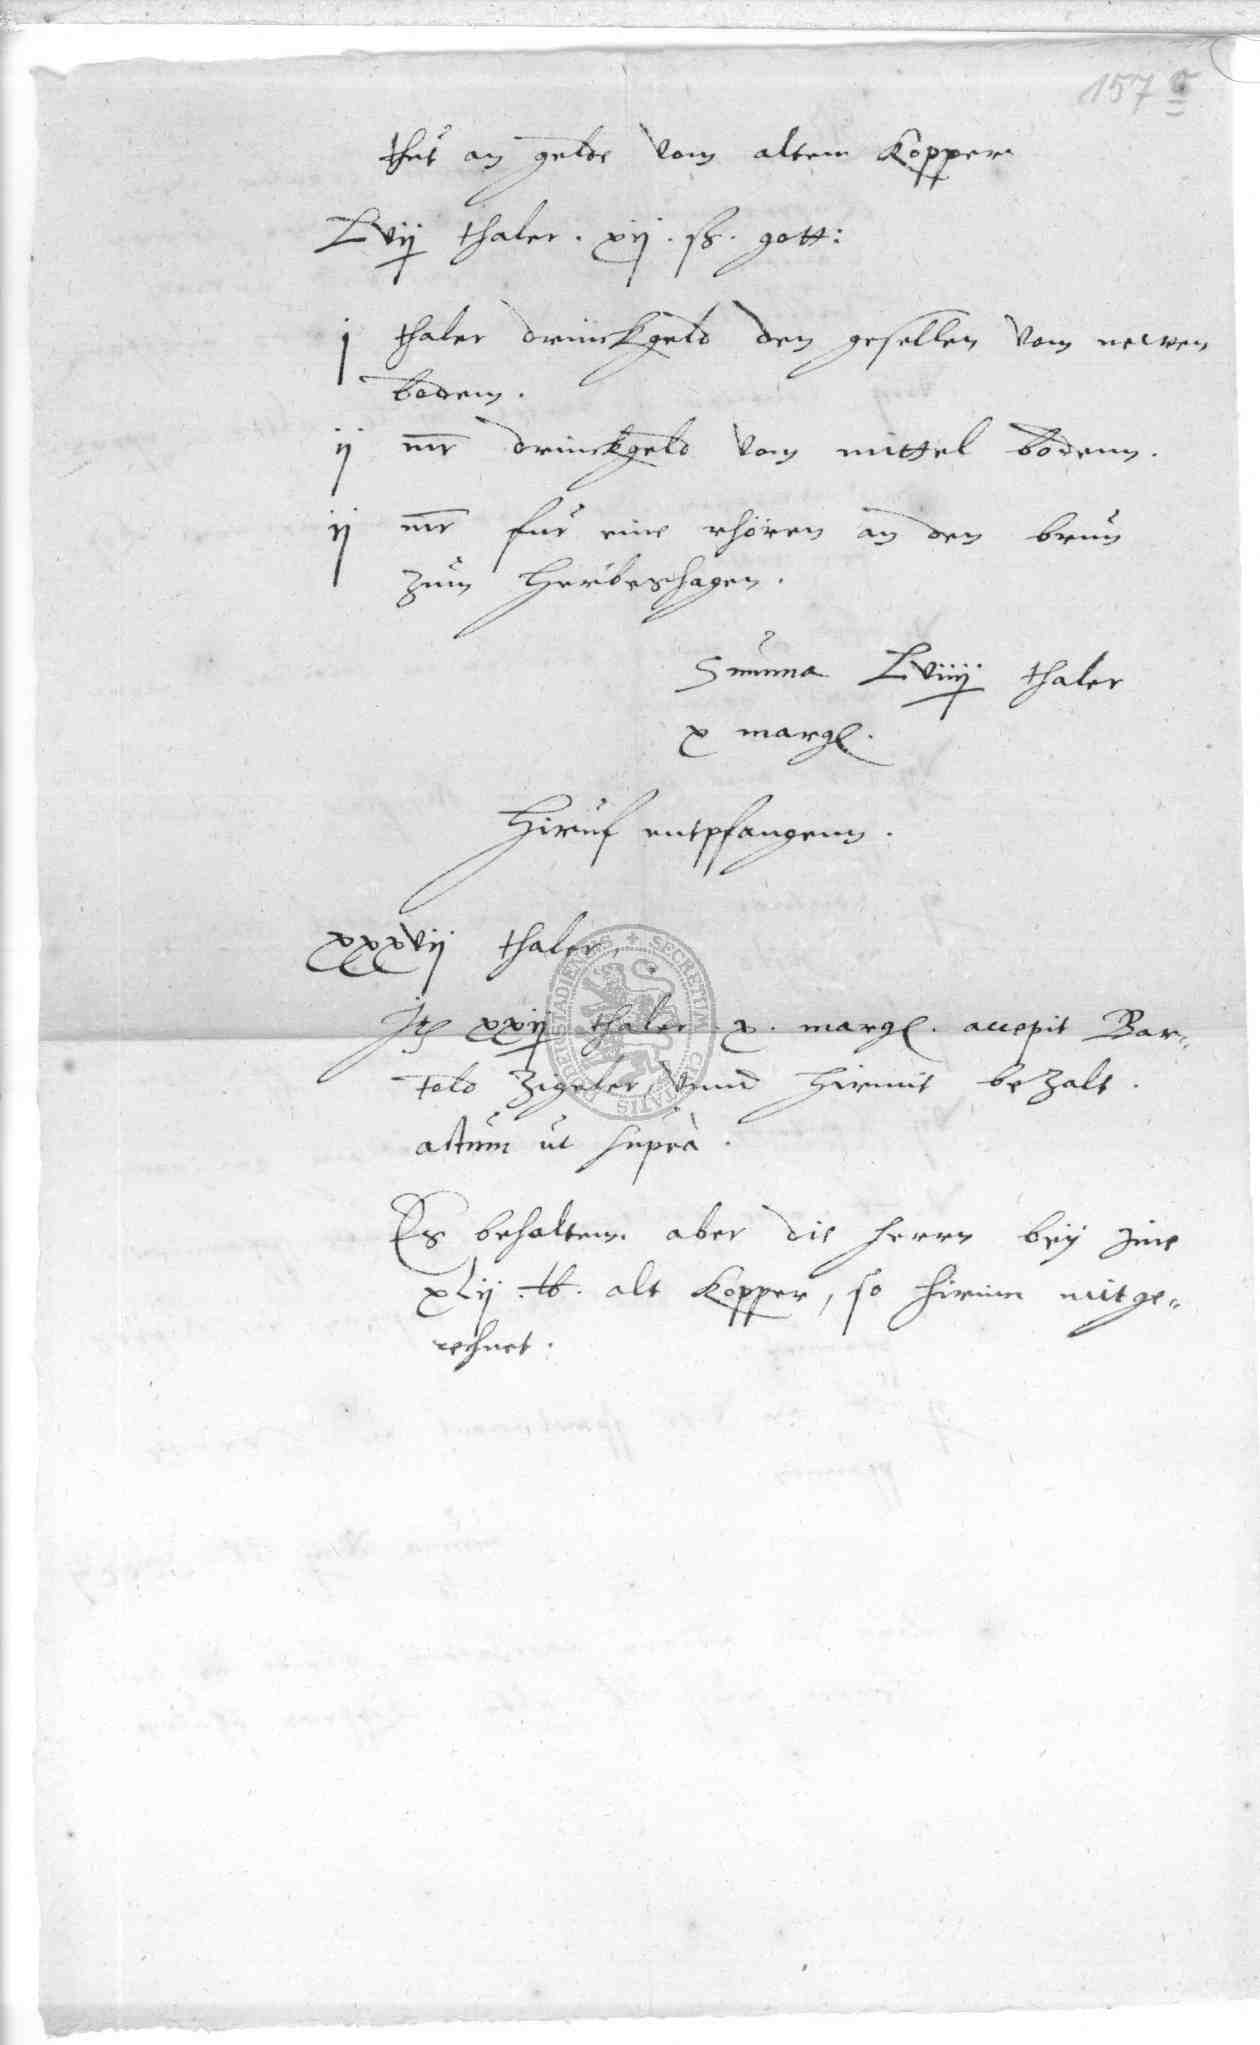 157 c
thut an gelde vom altem Kopper
Lvij thaler . xij . ß . gott:
j thaler drinckgeld den gesellen vom newen
bodem .
ij mr drinckgeld vom mittel bodenn .
ij mr fur eine rhören an den brun
zum Herbeshagen .
Summa Lviiij thaler
x margl .
Hiruf entpfangenn .
xxxvij thaler,
Itz xxij thaler x . margl . accepit Bar„
told Zigeler, vnnd hirmit bezalt .
actum ut supra .
Es behaltenn aber die herrn beÿ
xLij . lb . alt Kopper, so hirinn mitge„
rechnet .
SECRETUM CIVITATIS